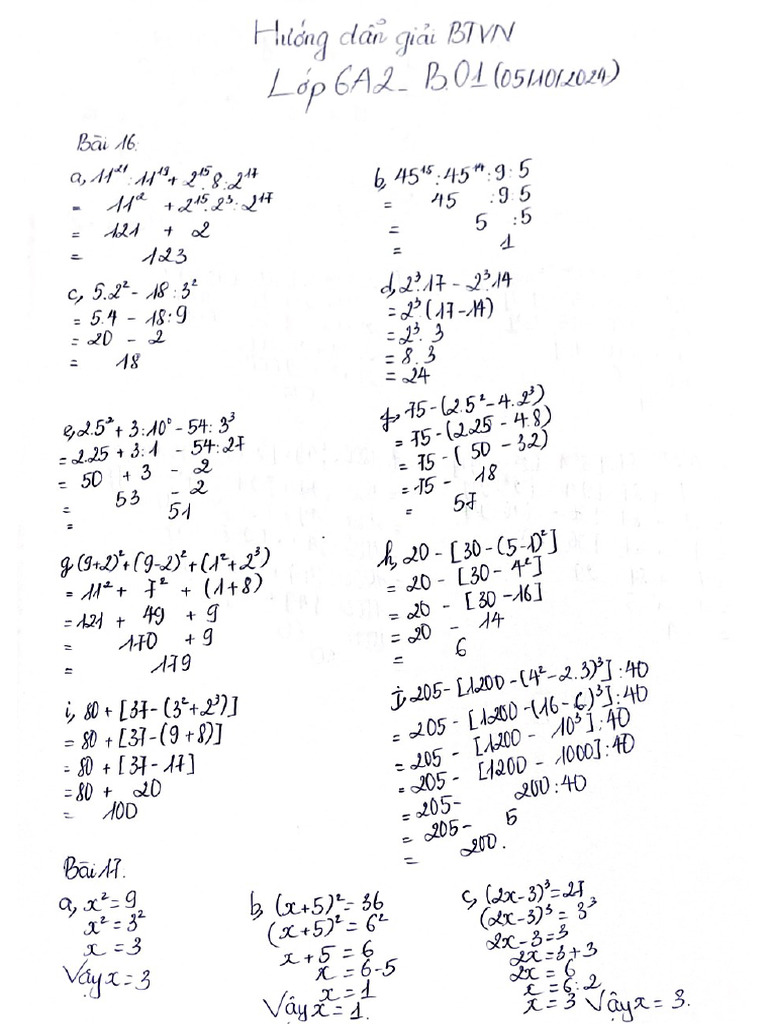 Hướng dẫn giải BTVN
Lớp 6A2 - B.01 (05/10/2024)
Bài 16:
a, 11²¹:11¹⁹ + 2¹⁵.8:2¹⁷
= 11² + 2¹⁵.2³:2¹⁷
= 121 + 2
= 123
b, 45¹⁵:45¹⁴:9:5
= 45 :9:5
= 5 :5
= 1
c, 5.2² - 18:3²
= 5.4 - 18:9
= 20 - 2
= 18
d, 2³.17 - 2³.14
= 2³(17-14)
= 2³.3
= 8.3
= 24
e, 2.5² + 3:10⁰ - 54:3³
= 2.25 + 3:1 - 54:27
= 50 + 3 - 2
= 53 - 2
= 51
f, 75-(2.5²-4.2³)
= 75-(2.25-4.8)
= 75-(50-32)
= 75 - 18
= 57
g, (9+2)²+(9-2)²+(1²+2³)
= 11² + 7² + (1+8)
= 121 + 49 + 9
= 170 + 9
= 179
h, 20 - [30-(5-1)²]
= 20 - [30-4²]
= 20 - [30-16]
= 20 - 14
= 6
i, 80 + [37-(3²+2³)]
= 80 + [37-(9+8)]
= 80 + [37-17]
= 80 + 20
= 100
j, 205-[1200-(4²-2.3)³]:40
= 205-[1200-(16-6)³]:40
= 205-[1200-10³]:40
= 205-[1200-1000]:40
= 205- 200:40
= 205- 5
= 200.
Bài 17.
a, x² = 9
x² = 3²
x = 3
Vậy x = 3
b, (x+5)² = 36
(x+5)² = 6²
x+5 = 6
x = 6-5
x = 1
Vậy x = 1.
c, (2x-3)³=27
(2x-3)³ = 3³
2x-3=3
2x=3+3
2x = 6
x = 6:2
x = 3 Vậy x = 3.